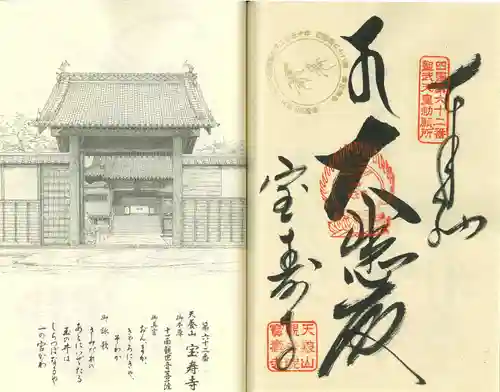 第六十二番
天養山 宝寿寺
御本尊
十一面観世音菩薩
御真言
おんまか
きゃろにきゃ
そわか
御詠歌
さみだれの
あとにいでたる
玉の井は
しらつぼなるや
一の宮かわ
奉拝
四国第六十二番
聖武天皇勅願所
大悲殿
宝寿寺
天養山
観音院
宝寿寺